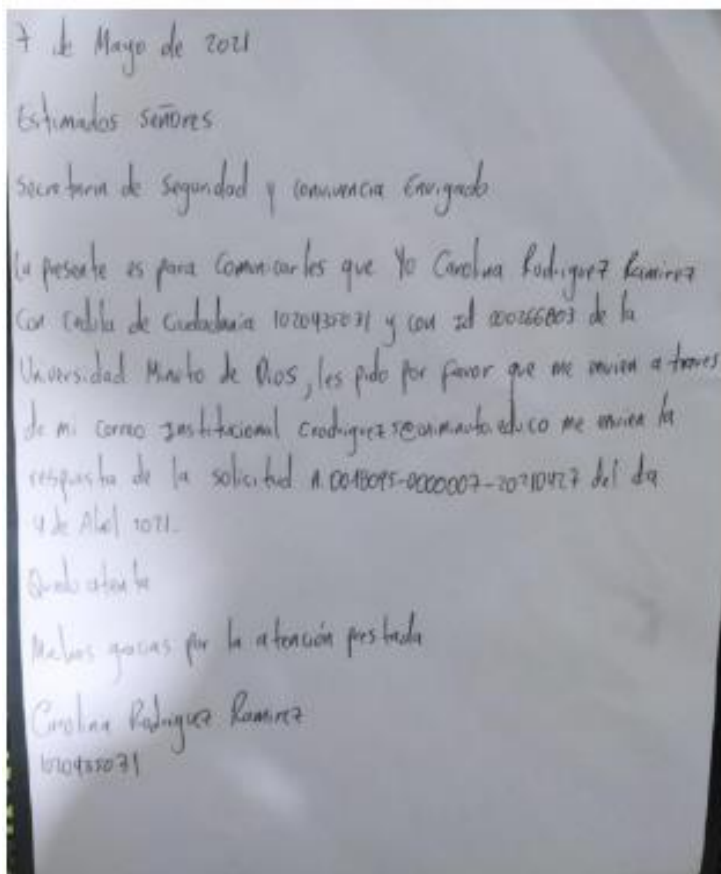 7 de Mayo de 2021
Estimados Señores
Secretaria de Seguridad y convivencia Envigado
La presente es para Comunicarles que Yo Carolina Rodriguez Ramirez
Con Cedula de Ciudadania 1020435031 y con id 000266803 de la
Universidad Minuto de Dios, les pido por favor que me envien a traves
de mi correo Institucional me envien la
respuesta de la solicitud del dia
4 de Abril 2021.
Quedo atenta
Muchas gracias por la atención prestada
Carolina Rodriguez Ramirez
1020435031